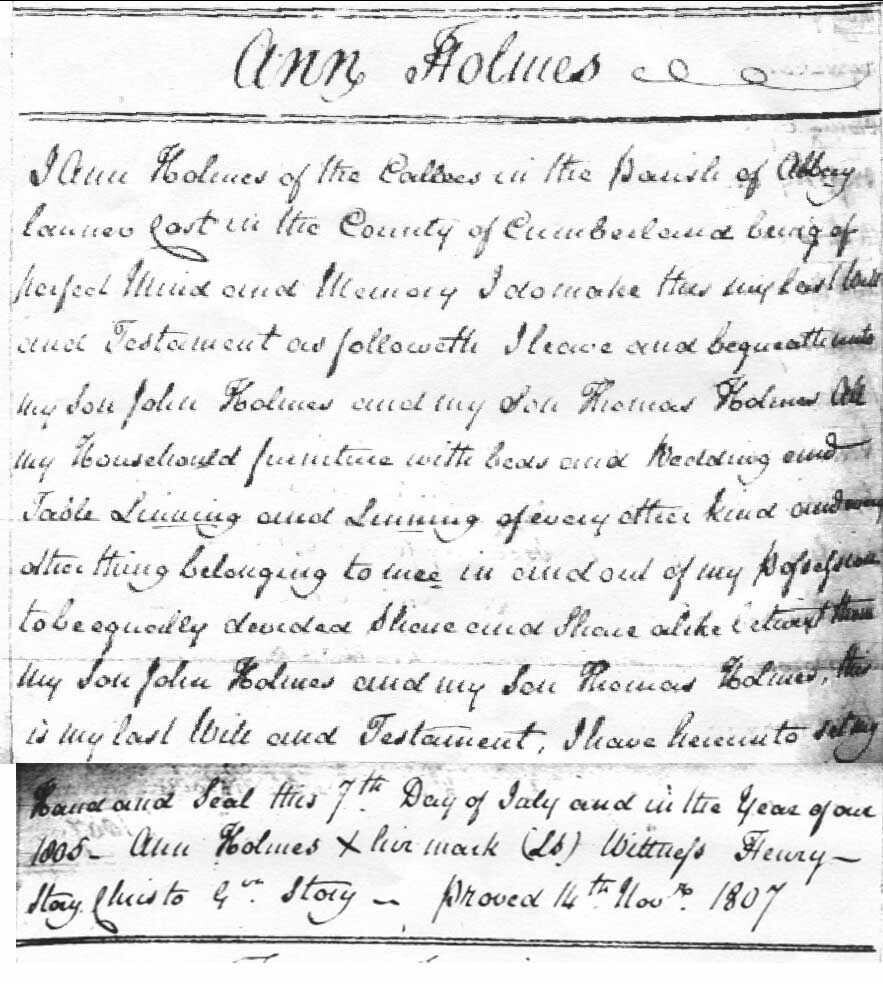 Ann Holmes
I Ann Holmes of the Callees in the Parish of Abbey
lanner Cost in the County of Cumberland being of
perfect Mind and Memory I do make this my last Will
and Testament as followeth I leave and bequeath unto
my Son John Holmes and my Son Thomas Holmes All
my Househould furniture with beds and Bedding and
Table Linning and Linning of every other kind and every
other thing belonging to mee in and out of my Possession
to be equally devided Share and Share alike betwixt them
my Son John Holmes and my Son Thomas Holmes, this
is my last Will and Testament, I have hereunto set my
Hand and Seal this 7th Day of July and in the Year of our
1805 - Ann Holmes X hir mark (LS) Wittness Henry -
Story Christo Story - proved 14th Novr. 1807